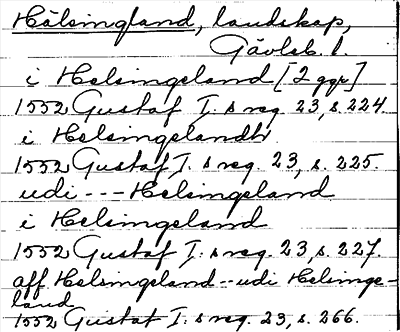 Hälsingland, landskap,
Gävleb. l.
i Helsingeland [2 ggr]
1552 Gustaf I:s reg. 23, s. 224.
i Helsingelandh
1552 Gustaf I:s reg. 23, s. 225.
udi --- Helsingeland
i Helsingeland
1552 Gustaf I:s reg. 23, s. 227.
aff Helsingeland -- udi Helsinge-
land
1552 Gustaf I:s reg. 23, s. 266.